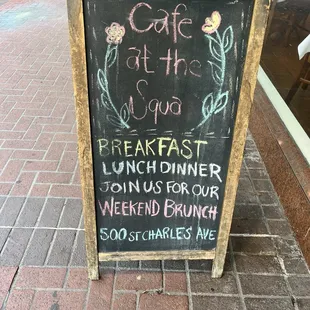 Cafe
at the
Squa
BREAKFAST
LUNCH DINNER
JOIN US FOR OUR
WEEKEND BRUNCH
500 ST CHARLES AVE